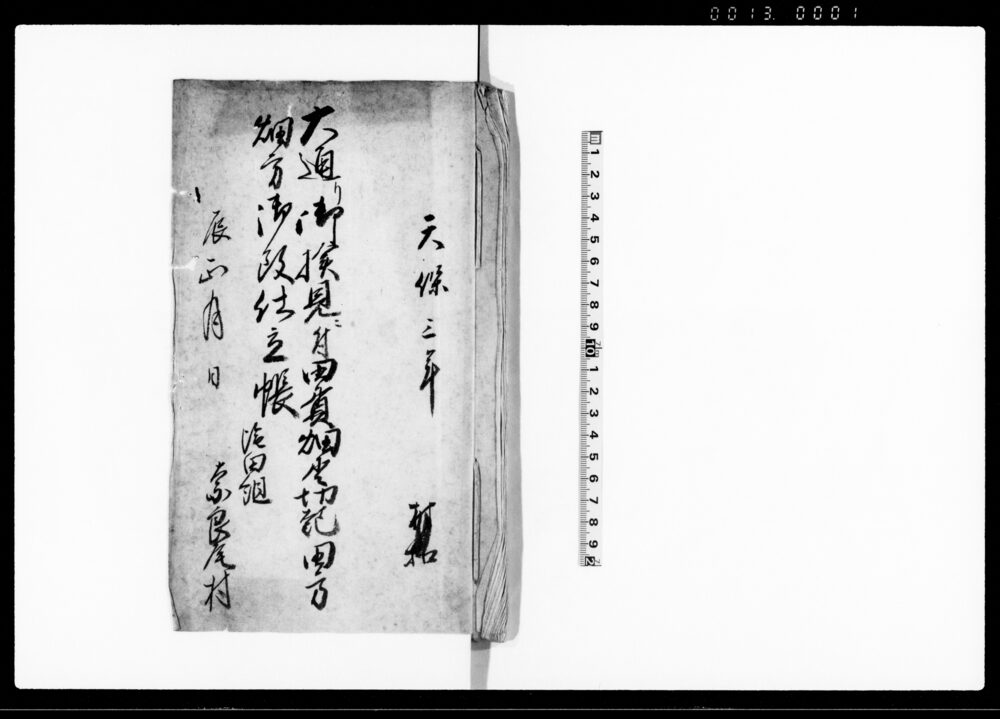 0013. 0001
天保三年
村扣
大通り御検見ニ付田貢畑坐切記田方
畑方御改仕立帳
辰正月日
田組
奈良尾村
1 2 3 4 5 6 7 8 9 10 1 2 3 4 5 6 7 8 9 2